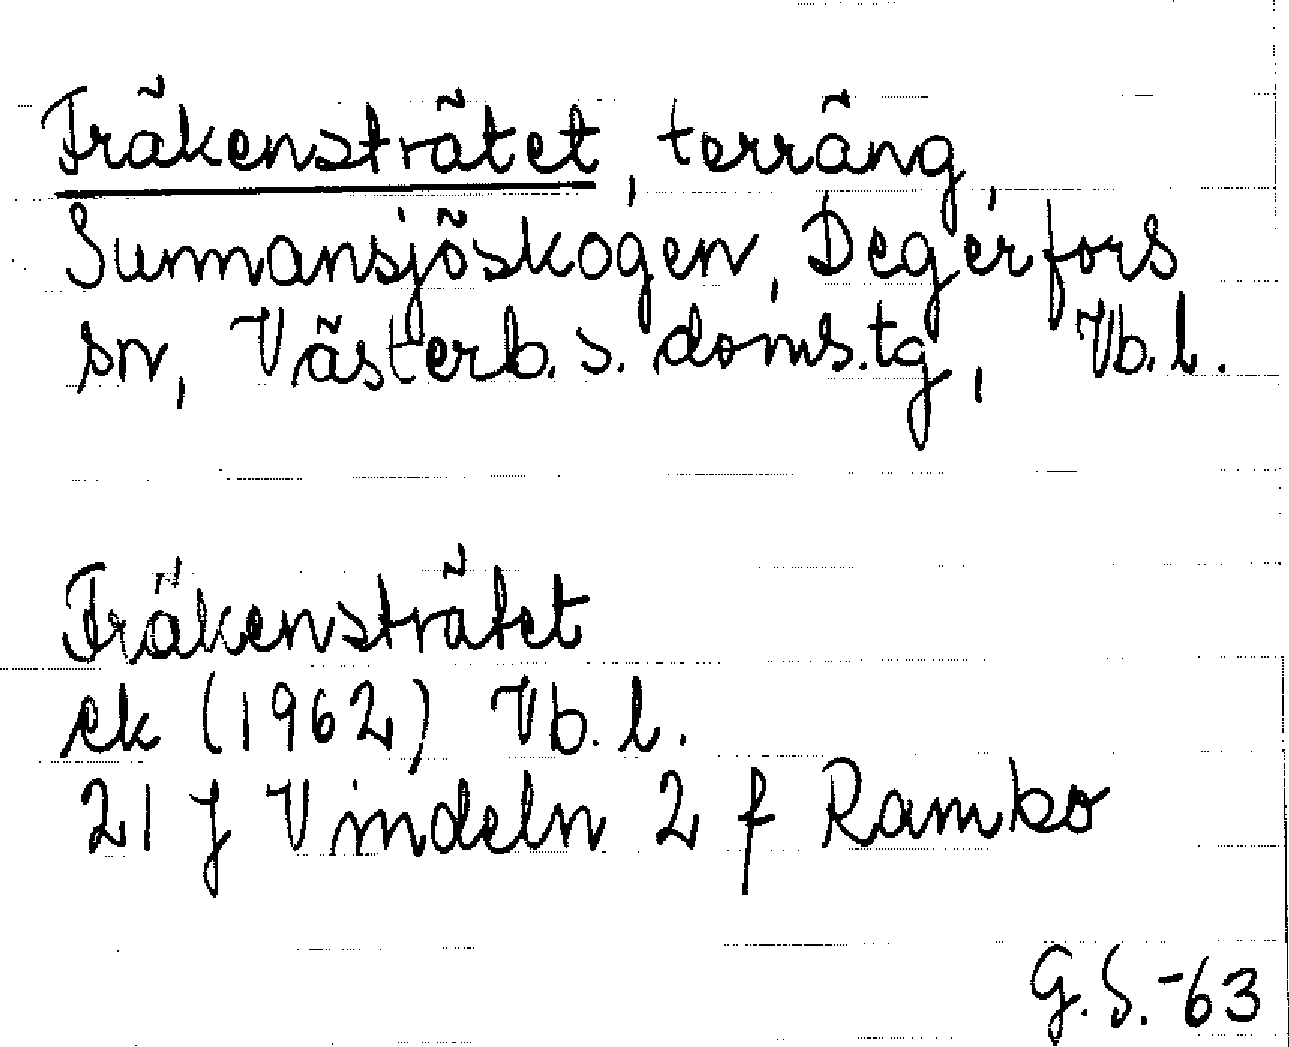 Fräkensträtet, terräng,
Sunnansjöskogen, Degerfors
sn, Västerb. s. doms.tg, Vb. l.
Fräkensträtet
ek (1962) Vb. l.
21 J Vindeln 2 f Rambo
G.S.-63